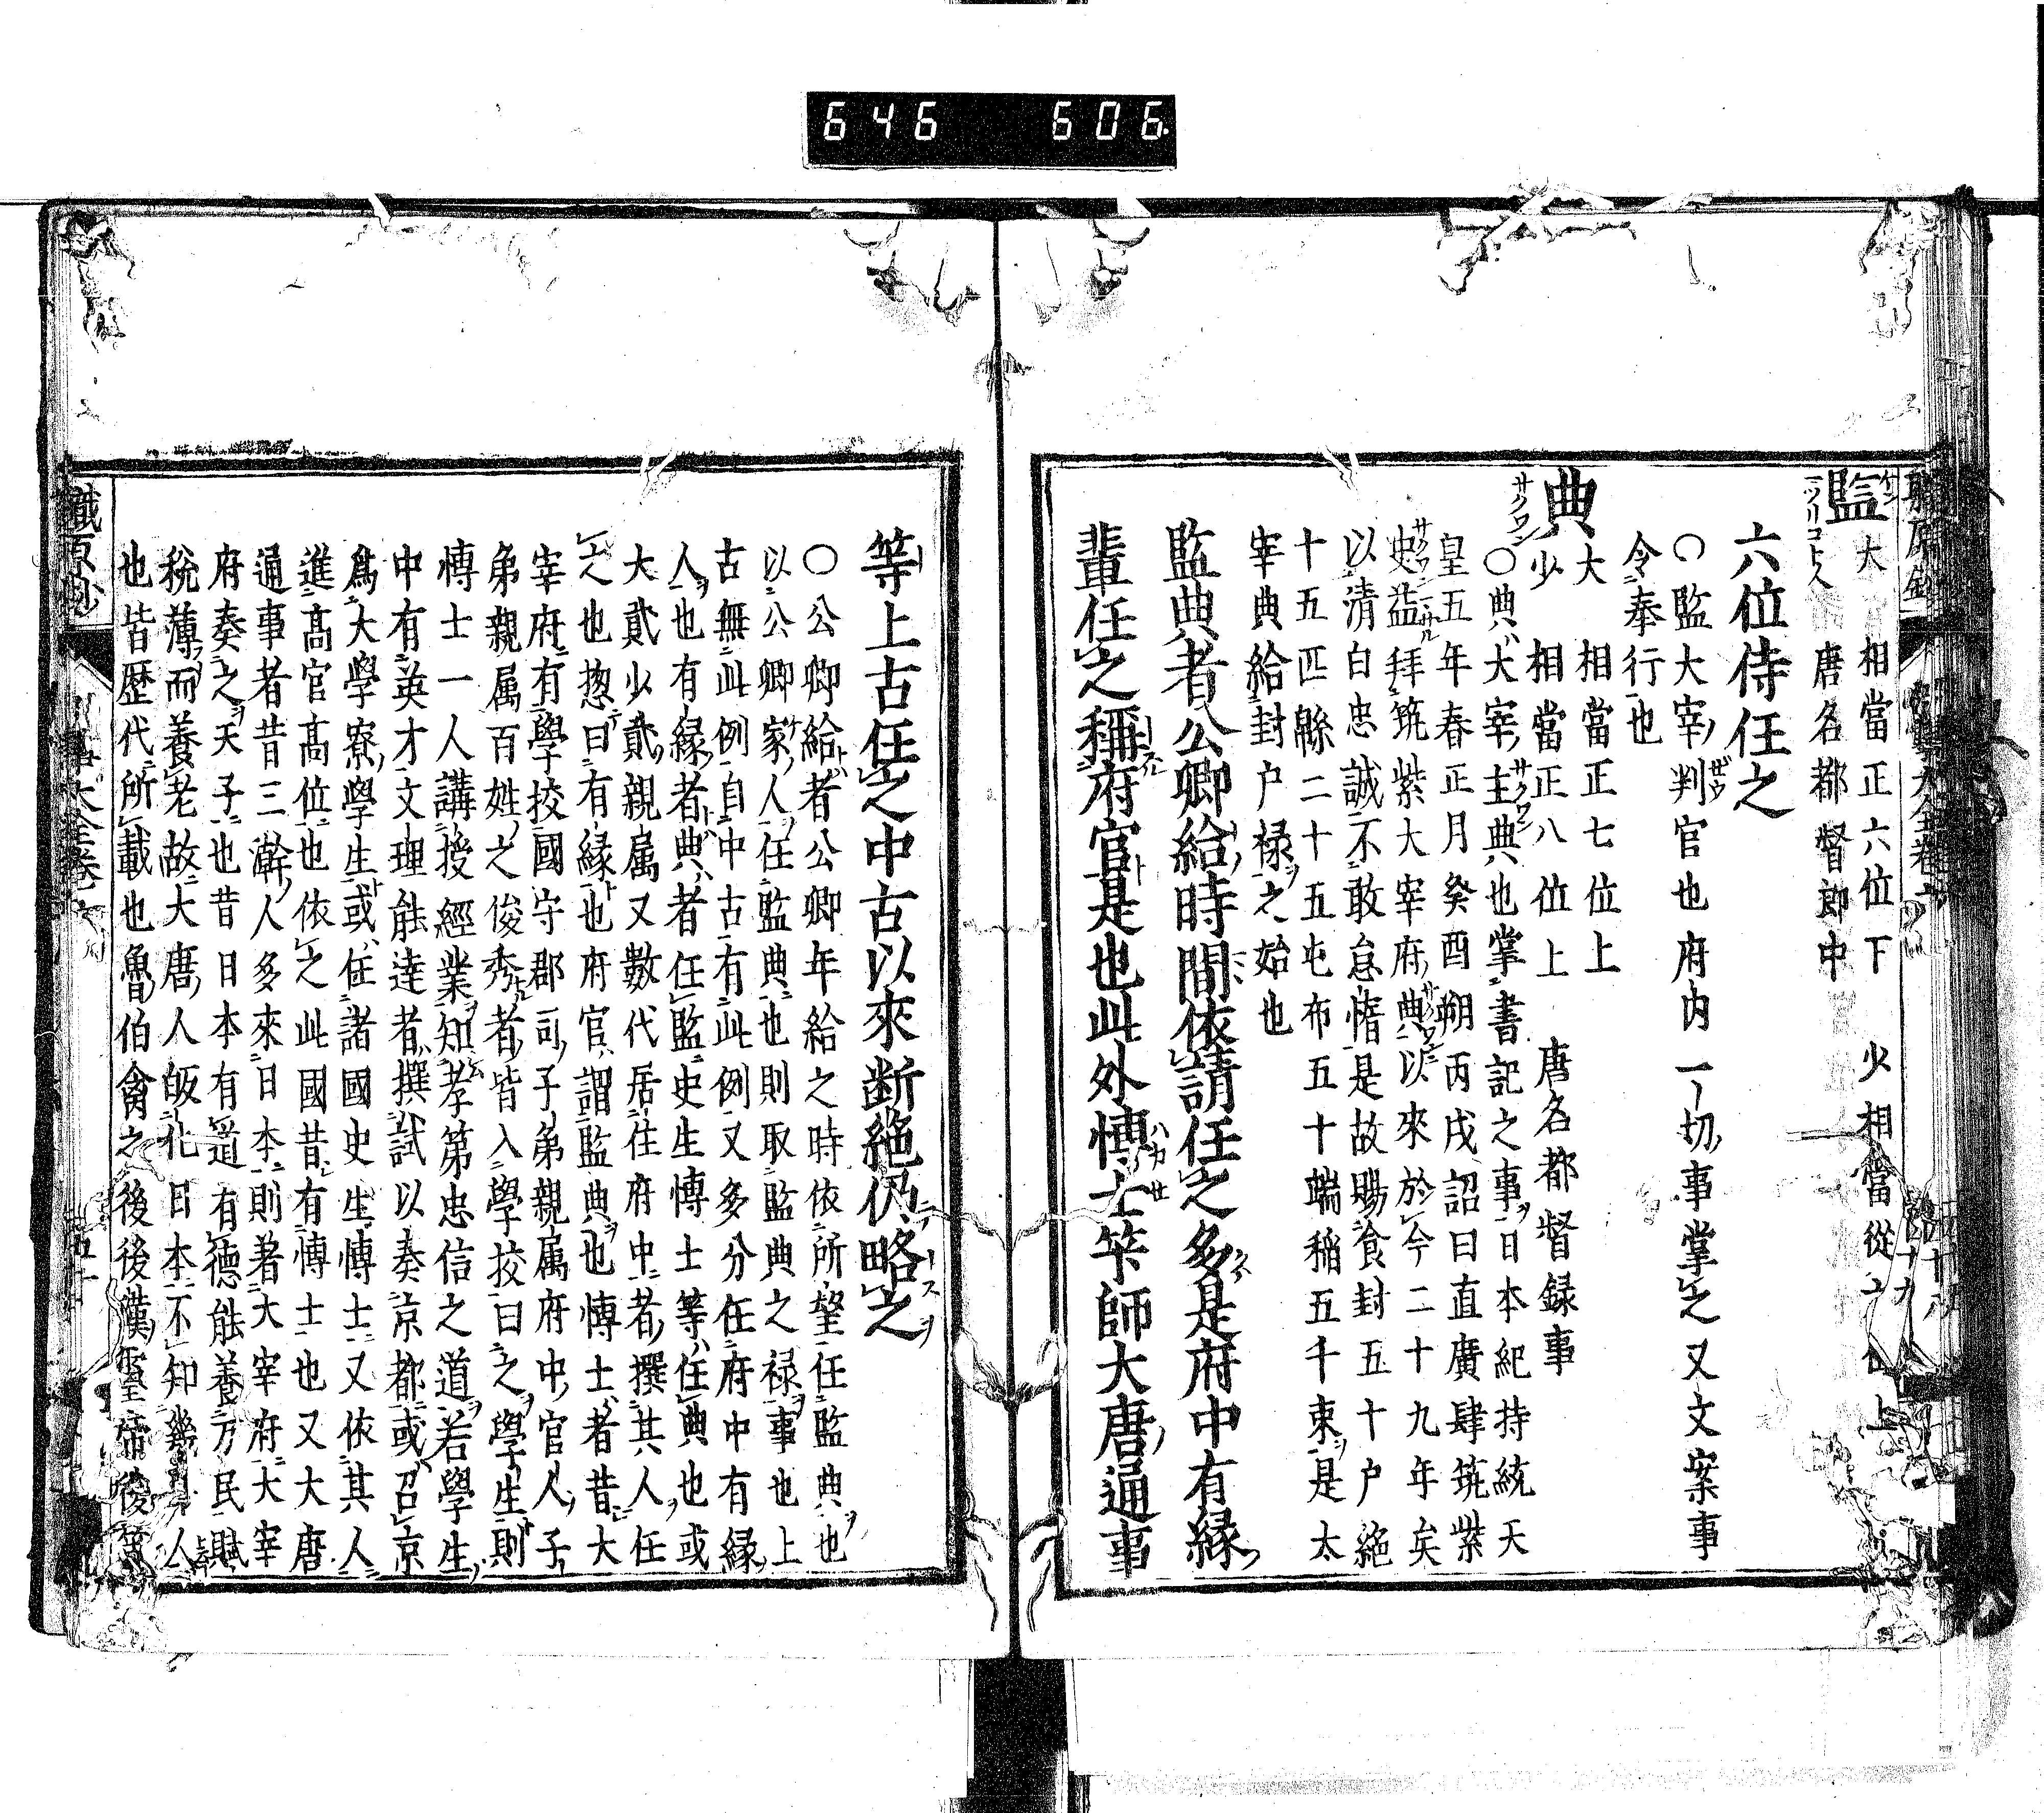 646 606
監 大 相當正六位下 少 相當從 位上
唐名都督郎中
六位侍任之
〇監大宰判官也府内一切事掌之又文案事
令奉行也
典 大 相當正七位上
少 相當正八位上 唐名都督録事
〇典大宰主典也掌書記之事日本紀持統天
皇五年春正月癸酉朔丙戌詔曰直廣肆筑紫
史益拜筑紫大宰府典以來於今二十九年矣
以清白忠誠不敢怠惰是故賜食封五十戸絁
十五匹緜二十五屯布五十端稲五千束是太
宰典給封戸禄之始也
監典者公卿給時間依請任之多是府中有縁
輩任之稱府官是也此外博士竿師大唐通事
等上古任之中古以來断絶仍略之
〇公卿給者公卿年給之時依所望任監典也
以公卿家人任監典也則取監典之禄事也上
古無此例自中古有此例又多分任府中有縁
人也有縁者典者任監史生博士等任典也或
大貳少貳親属又數代居住府中者撰其人任
之也惣曰有縁也府官謂監典也博士者昔大
宰府有學挍國守郡司子弟親属府中官人子
弟親属百姓之俊秀者皆入學挍曰之學生則
博士一人講授經業知孝第忠信之道若學生
中有英才文理能達者撰試以奏京都或召京
爲大學寮學生或任諸國史生博士又依其人
進髙官髙位也依之此國昔有博士也又大唐
通事者昔三韓人多來日本則着大宰府大宰
府奏之天子也昔日本有道有德能養万民賦
税薄而養老故大唐人皈化日本不知幾
也皆歴代所載也魯伯禽之後後漢靈帝後
職原鈔